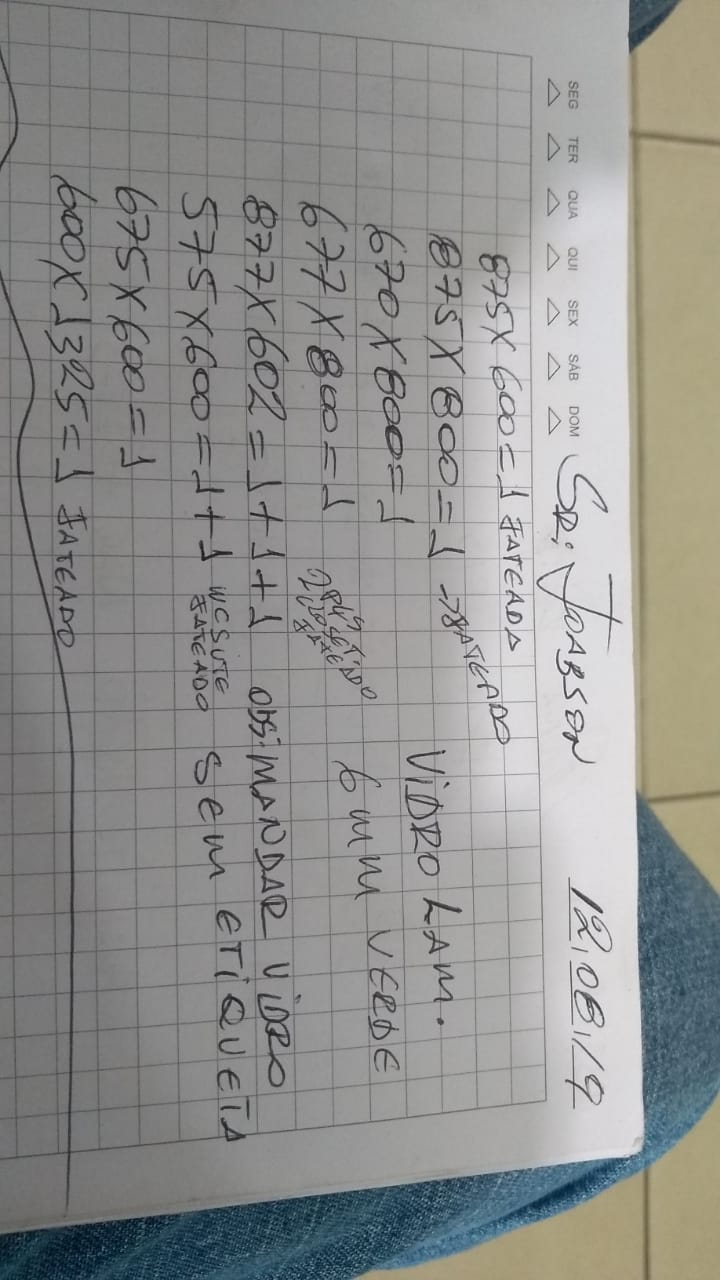 SEG TER QUA QUI SEX SÁB DOM
SR: JOABSON 12.08.19
875X600=1 JATEADA
875X800=1 → JATEADO
670X800=1 VIDRO LAM.
677X800=1 6mm VERDE
877X602=1+1+1 OBS: MANDAR VIDRO
575X600=1+1 JATEADO SEM ETIQUETA
675X600=1
600X1325=1 JATEADO